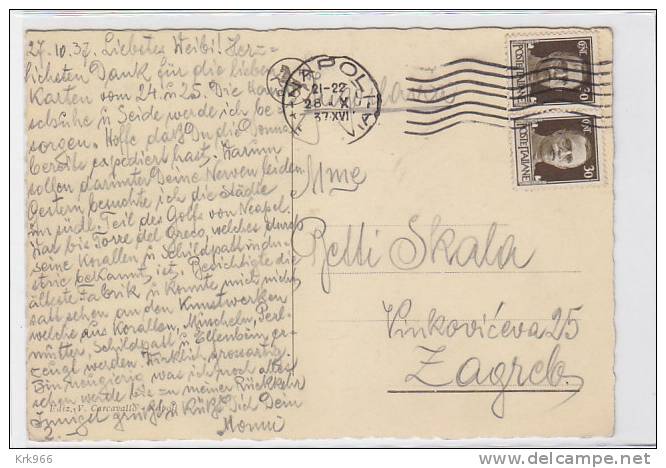 27.10.37. Liebstes Weibi! Herz-
lichsten Dank für die lieben
Karten vom 24. u 25. Die Hand-
schuhe u Seide werde ich be-
sorgen. Hoffe daß Du die
bereits expediert hast. Warum
sollen darunter Deine Nerven leiden
Gestern besuchte ich die Städte
im südl. Teil des Golfs von Neapel.
bis Torre del Greco, welches durch
seine Korallen u Schildpattindu-
strie bekannt ist. Besichtigte die
älteste Fabrik u konnte mich nicht
satt sehen an den Kunstwerken
welche aus Korallen, Muscheln, Perl-
mutter, Schildpatt u Elfenbein er-
zeugt werden. Wirklich grossartig.
Bin neugierig was ich noch alles
sehen werde bis zu meiner Rückkehr
Innigst grüßt u Küßt Dich Dein
Ediz. V. Carcavallo - Napoli
NAPOLI
21-22
28 X
37·XVI
POSTE ITALIANE
CENT. 20
POSTE ITALIANE
CENT. 30
Mme
Skala
Vinkovićeva 25
Zagreb.
Krk966
www.delcampe.net